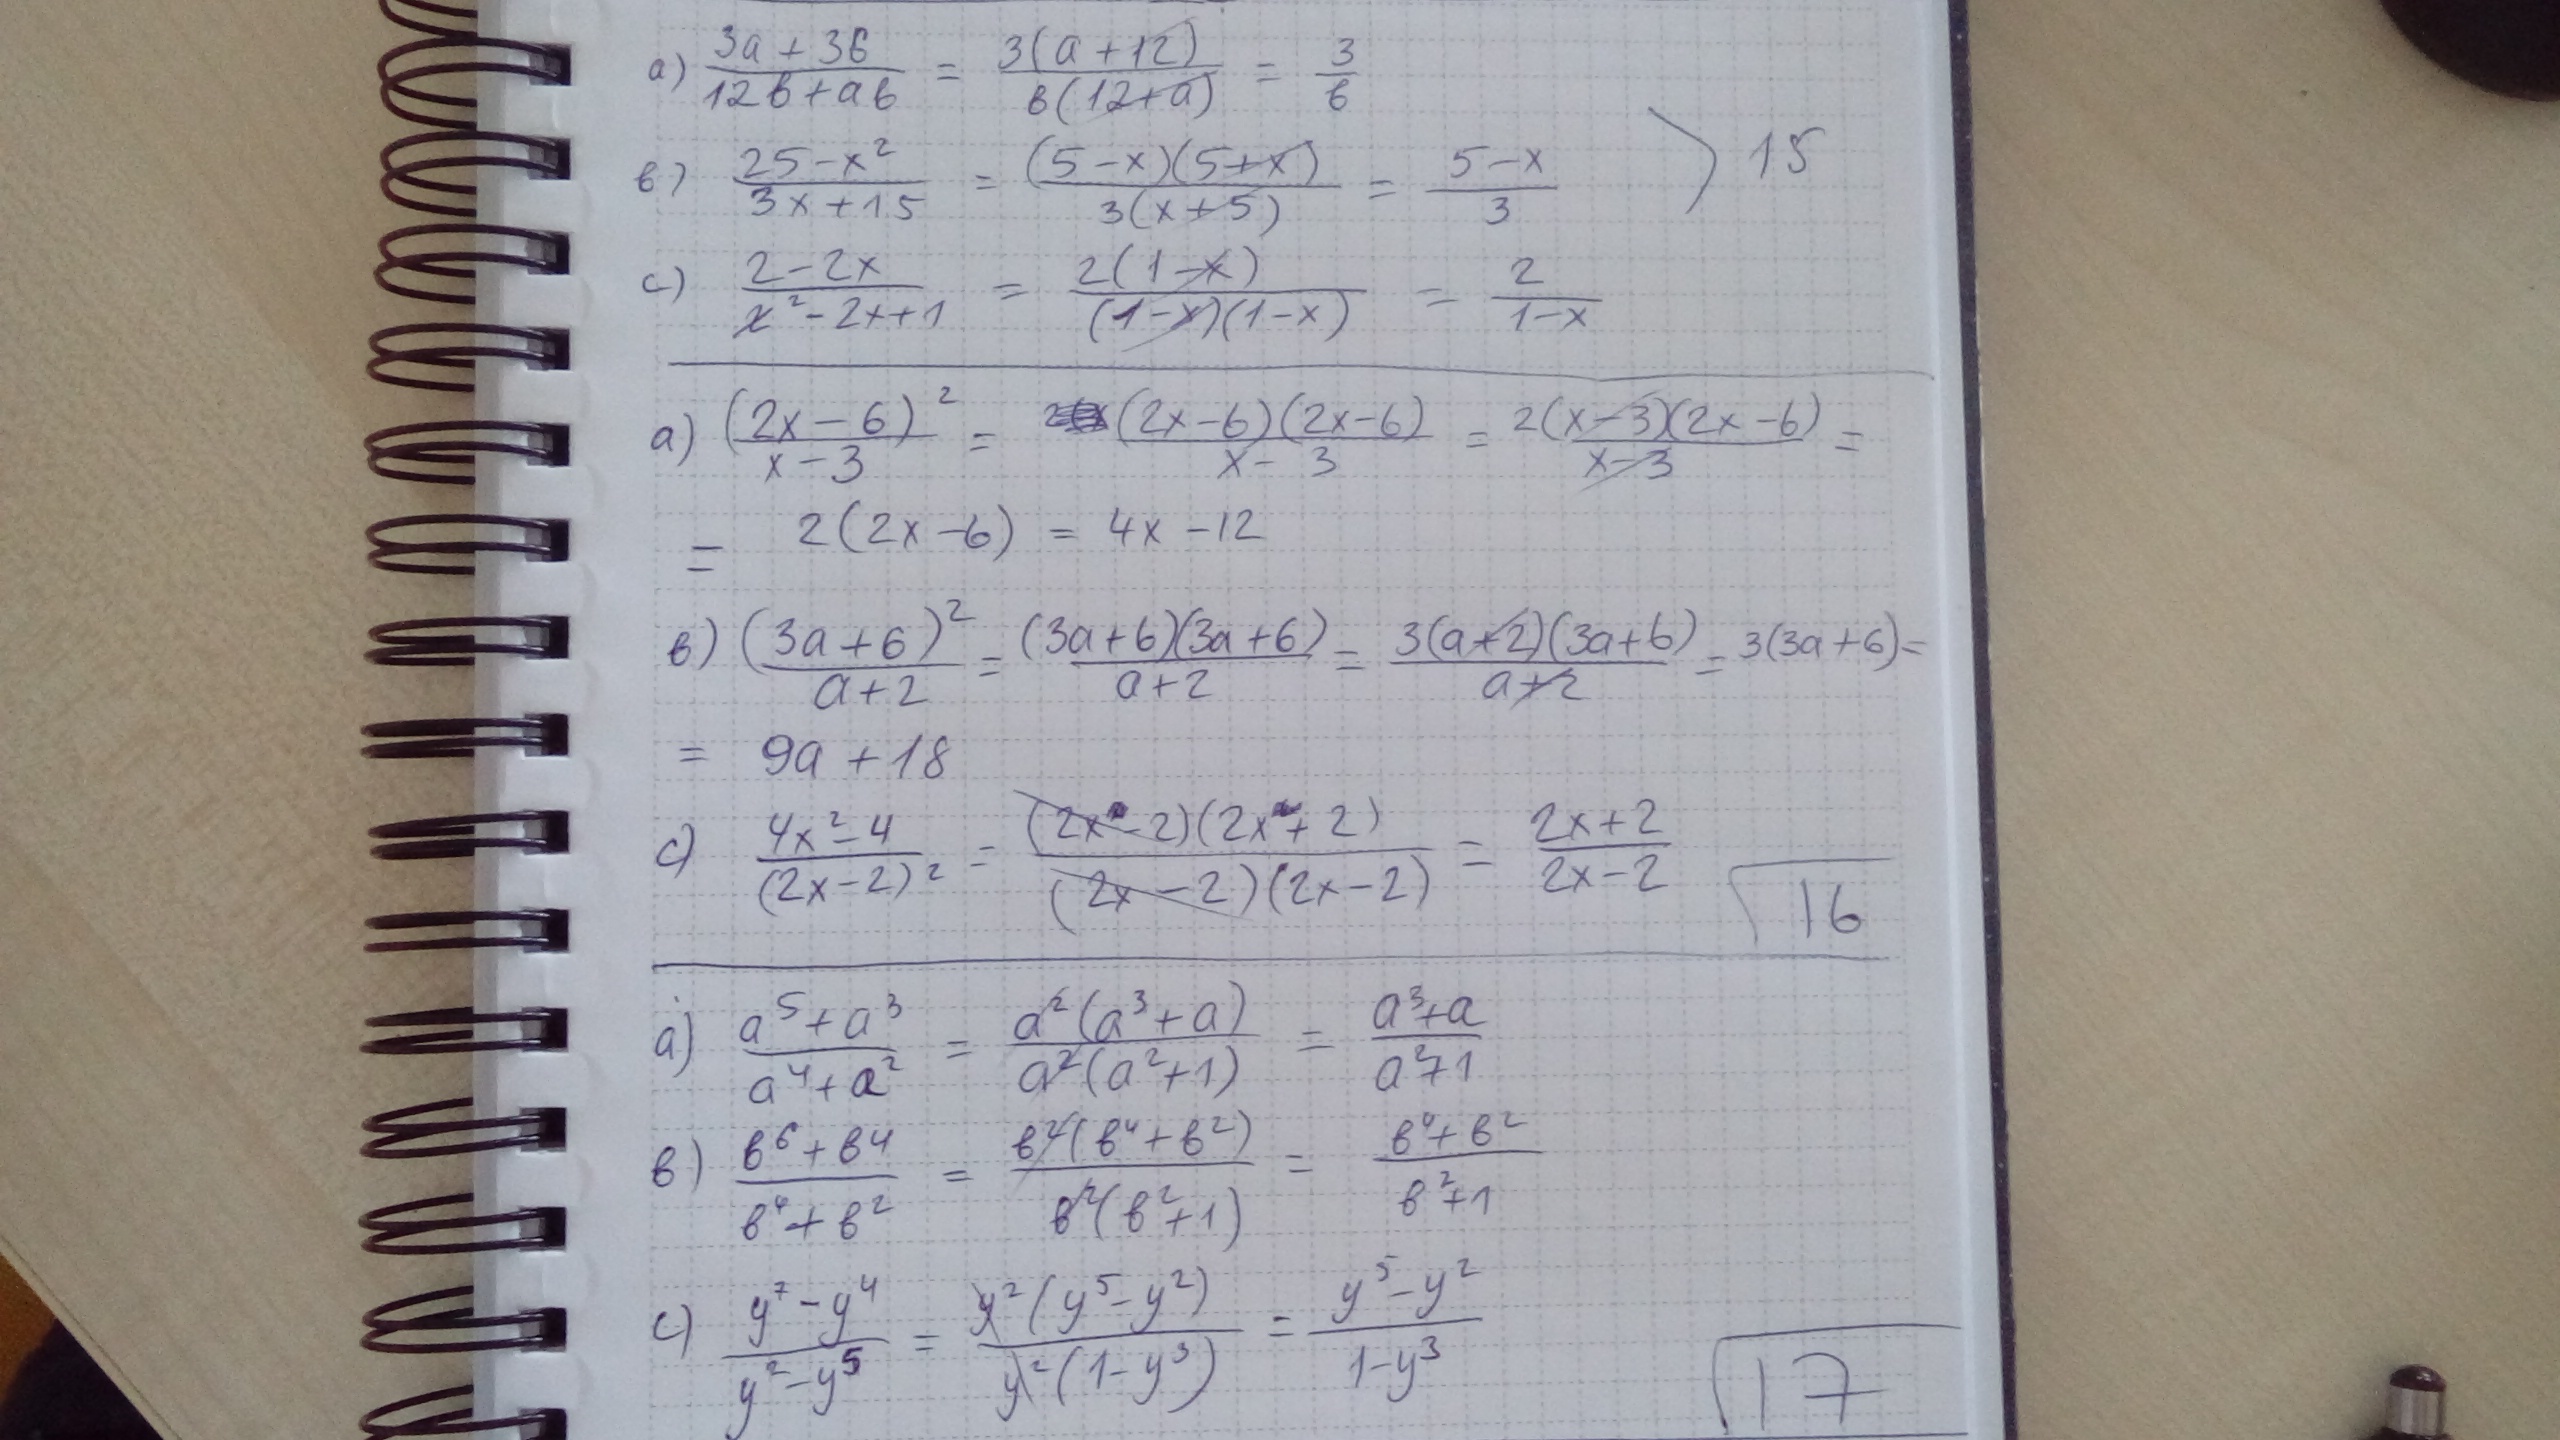 a) (3a + 36)/(12b + ab) = 3(a + 12)/b(12+a) = 3/b
b) (25 - x²)/(3x + 15) = (5 - x)(5 + x)/3(x + 5) = (5 - x)/3 15
c) (2 - 2x)/(x² - 2x + 1) = 2(1 - x)/(1 - x)(1 - x) = 2/(1 - x)
a) (2x - 6)²/(x - 3) = (2x - 6)(2x - 6)/(x - 3) = 2(x - 3)(2x - 6)/(x - 3) =
= 2(2x - 6) = 4x - 12
b) (3a + 6)²/(a + 2) = (3a + 6)(3a + 6)/(a + 2) = 3(a + 2)(3a + 6)/(a + 2) = 3(3a + 6) =
= 9a + 18
c) (4x² - 4)/(2x - 2)² = (2x - 2)(2x + 2)/(2x - 2)(2x - 2) = (2x + 2)/(2x - 2) 16
a) (a⁵ + a³)/(a⁴ + a²) = a²(a³ + a)/a²(a² + 1) = (a³ + a)/(a² + 1)
b) (b⁶ + b⁴)/(b⁴ + b²) = b²(b⁴ + b²)/b²(b² + 1) = (b⁴ + b²)/(b² + 1)
c) (y⁷ - y⁴)/(y² - y⁵) = y²(y⁵ - y²)/y²(1 - y³) = (y⁵ - y²)/(1 - y³) 17